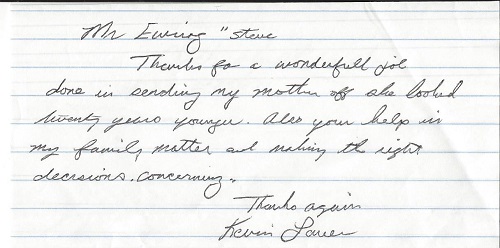 Mr Ewing "Steve
Thanks for a wonderfull job
done in sending my mother off she looked
twenty years younger. Also your help in
my family matter and making the right
decisions. concerning.
Thanks again
Kevin